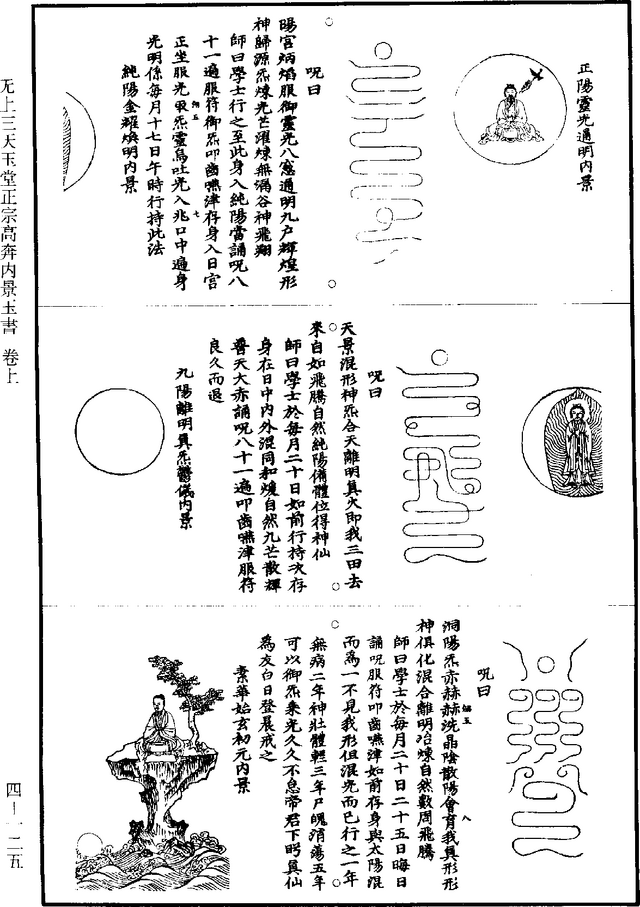 无上三天玉堂正宗高奔内景玉書 卷上
四—一二五
正陽靈光通明内景
呪曰
陽宫炳焰服御靈光八窓通明九户輝煌形
神歸源炁煉光芒濯煉無漏谷神飛翔
師曰學士行之至此身入純陽當誦呪八
十一遍服符御炁叩齒嚥津存身入日宫
正坐服光吸炁靈烏吐光入兆口中遍身
光明係每月十七日午時行持此法
純陽金耀煥明内景
呪曰
天景混形神炁合天離明真火即我三田去
來自如飛騰自然純陽備體位得神仙
師曰學士於每月二十日如前行持次存
身在日中内外混同和煖自然九芒散輝
普天大赤誦呪八十一遍叩齒嚥津服符
良久而退
九陽離明真炁鬱儀内景
呪曰
洞陽炁赤赫赫洗晶陰散陽會育我真形形
神俱化混合離明冶煉自然數周飛騰
師曰學士於每月二十日二十五日晦日
誦呪服符叩齒嚥津如前存身與太陽混
而為一不見我形但混光而已行之一年
無病二年神壯體輕三年尸魄消蕩五年
可以御炁乘光久久不息帝君下眄真仙
為友白日發晨戒之
素華始玄初元内景